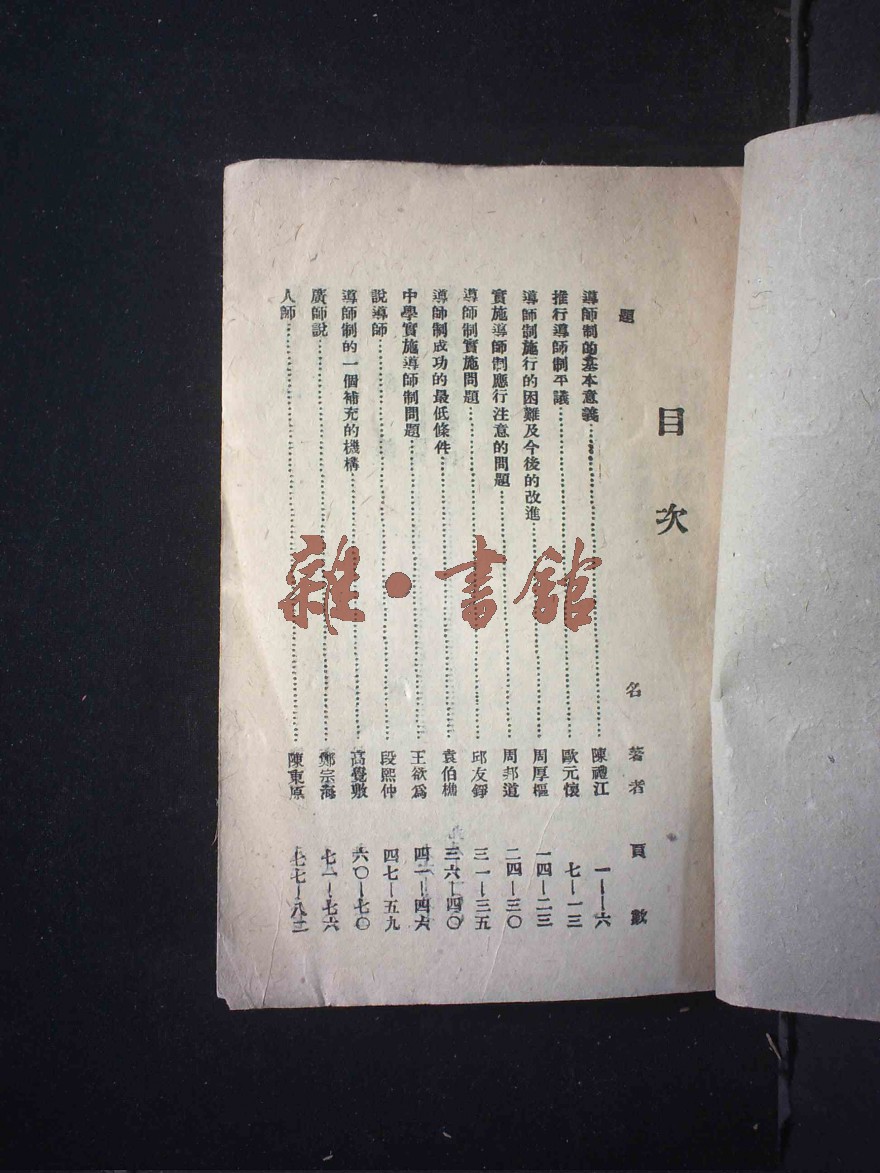 目次
題名 著者 頁數
導師制的基本意義 陳禮江 一—六
推行導師制平議 歐元懷 七—一三
導師制施行的困難及今後的改進 周厚樞 一四—二三
實施導師制應行注意的問題 周邦道 二四—三〇
導師制實施問題 邱友錚 三一—三五
導師制成功的最低條件 袁伯樵 三六—四〇
中學實施導師制問題 王欲為 四一—四六
說導師 段熙仲 四七—五九
導師制的一個補充的機構 高覺敷 六〇—七〇
廣師說 鄭宗海 七一—七六
人師 陳東原 七七—八二
雜·書館